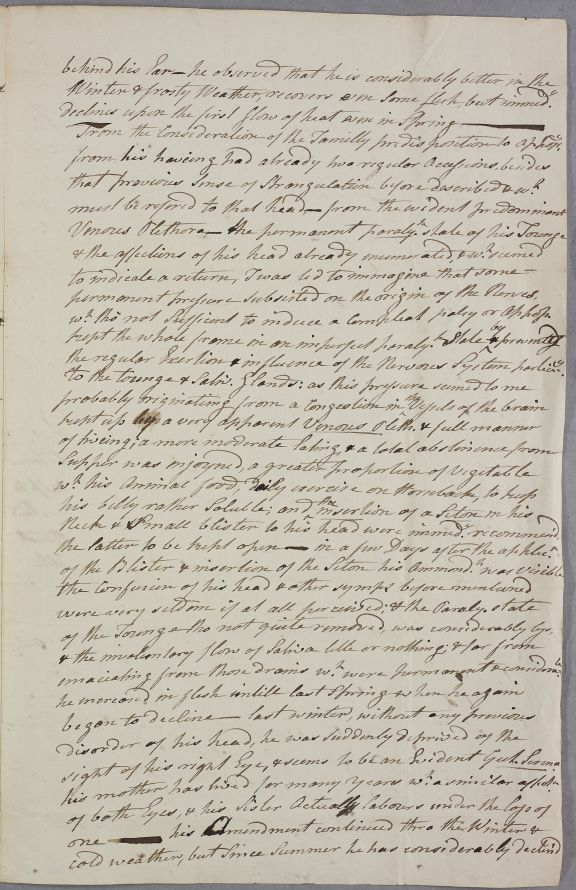 behind his Ear — he observed that he is considerably better in the
Winter & frosty Weather, recovers even some flesh, but immed:y
declines upon the first flow of heat even in Spring —
From the Consideration of the Familly predisposition to Apop:y
from his haveing had already two regular Accessions, besides
that previous sense of Strangulation before described & wh
must be refered to that head — from the evident predominant
Venous Plethora — the permanent paraly:c state of his Tounge
& the affections of his head already enumerated & wh seemed
to indicate a return, I was led to immagine that some
permanent pressure subsisted on the origin of the Nerves,
wh tho not Sufficent to induce a compleat palsy or Apop:
kept the whole frame in an imperfect paraly:c State & by preventing
the regular Exertion & influence of the Nervous System partic:y
to the tounge & Saliv: Glands: as this pressure seemed to me
probably originating from a Congestion in the Vessels of the brain
kept up by a very apparent Venous Pleth: & full manner
of liveing; a more moderate eating, & a total abstinence from
Supper was injoyned, a greater proportion of Vegetable
wt his Animal food, Daily exercise on Horseback, to keep
his belly rather soluble; and the insertion of a Seton in his
Neck & Small blister to his head were immed:y recommend:
the latter to be kept open — in a few Days after the applic:n
of the Blister & insertion of the Seton his Ammend:t was Visible
the Confusion of his head & other symp:s before mentioned
were very seldom if at all perceived; & the Paraly: state
of the Tounge tho not quite removed, was considerably less,
& the involuntary flow of Saliva little or nothing; & far from
emaciating from those drains wh were permanent & considera:le
he increased in flesh untill last Spring when he again
began to decline — last winter, without any previous
disorder of his head, he was suddenly deprived of the
sight of his right Eye, & seems to be an Evident Gutt: Serena
his mother has lived for many Years wt a similar affect:n
of both Eyes, & his Sister Actually labours under the loss of
one — his Amendment continued thro the Winter &
cold weather, but Since Summer he has considerably declin'd